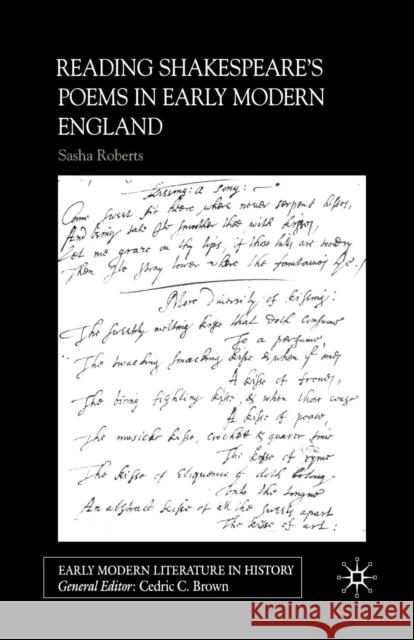 READING SHAKESPEARE'S
POEMS IN EARLY MODERN
ENGLAND
Sasha Roberts
Kissing: A Song:
Come sweet sit heere where never serpent hisses,
And being sate Ile smoother thee with kisses,
Let me graze on thy lips, if those hills are
Then Ile stray lower where the fountaines lye.
More Diversity of kissing:
The sweetly melting kisse that doth consume
To a perfume,
The smacking kisse & when if ones
A kisse of
The biting fighting kisse, & when those
A kisse of peace,
The musicke kisse, crochet & quaver time
The kisse of ryme
The kisse of Eloquence doth belong
Unto the tongue
An abstract kisse of all the sweets apart
The kisse of art:
EARLY MODERN LITERATURE IN HISTORY
General Editor: Cedric C. Brown